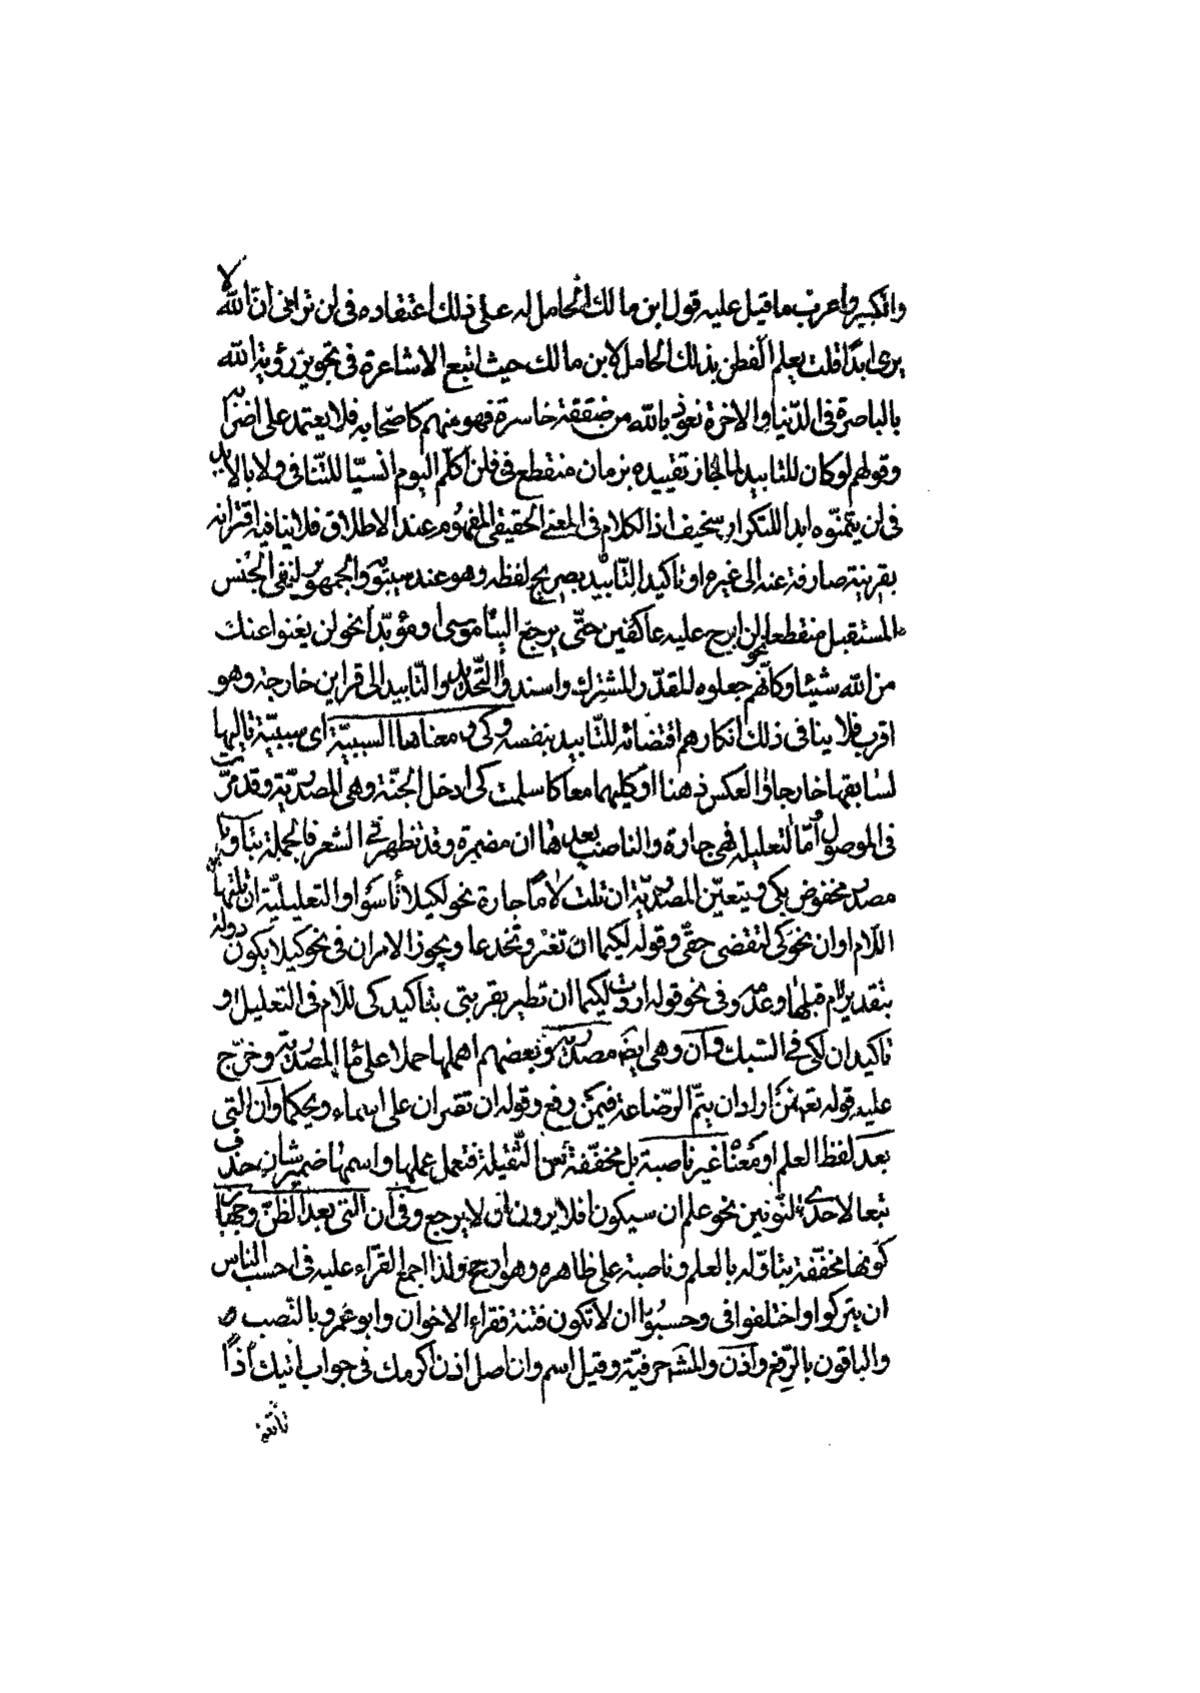 واعرب ما قيل عليه قول ابن مالك الحامل له على ذلك اعتقاده فى لن ترانى ان الله لا
يرى ابدًا قلت يعلم الفطن بذلك الحامل لابن مالك حيث اتبع الاشاعرة فى تجويز رؤية الله
بالباصرة فى الدّنيا والاخرة نعوذ بالله من صفقة خاسرة فهو منهم كاصحابه فلا يعتمد على
وقولهم لو كان للتابيد لما جاز تقييده بزمان منقطع فى فلن اكلّم اليوم انسيّا للتنافى ولا بالابد
فى لن يتمنّوه ابدا للتكرار سخيف اذ الكلام فى المعنى الحقيقى المفهوم عند الاطلاق فلا ينافيه اقترانه
بقرينة صارفة عنه الى غيره او تاكيد التّابيد بصريح لفظه وهو عند سيبويه والجمهور لنفى الجنس
المستقبل منقطعا نحو لن نبرح عليه عاكفين حتّى يرجع الينا موسى او مؤبّدا نحو لن يغنوا عنك
من الله شيئا وكانّهم جعلوه للقدر المشترك واسندوا التّحديد والتّابيد الى قراين خارجة وهو
اقرب فلا ينافى ذلك انكارهم اقتضائه للتّابيد بنفسه وكى ومعناها السببيّة اى سببيّة تاليها
لسابقها خارجا او العكس ذهنا او كليهما معا كاسلمت كى ادخل الجنّة وهى المصدريّة وقد مرّت
فى الموصول وأمّا التعليليّة فهى جارة والناصب بعدها ان مضمرة وقد تظهر فى الشعر فالجملة بتاويل
مصدر مخفوض بكى ويتعيّن المصدريّة ان تلت لامًا جارة نحو لكيلا تأسوا والتعليليّة ان تلتها
اللّام او ان نحو كى لتقضى حقى وقوله لكيما ان تغر وتخدعا ويجوز الامران فى نحو كيلا يكون دولة
بتقدير لام قبلها وعدمه وفى نحو قوله اردت لكيما ان تطير بقربتى بتاكيد كى للّام فى التعليل او
تاكيد ان لكى فى السّبك وآن وهى ايضا مصدريّة وبعضهم اهملها حملا على ما المصدريّة وخرّج
عليه قوله تعالى لمن اراد ان يتمّ الرّضاعة فيمن رفع وقوله ان تقران على اسماء ويحكما وان التى
بعد لفظ العلم او معناه غير ناصبة بل مخفّفة من الثّقيلة فتعمل عملها واسمها ضمير شان حذف
تبعا لاحدى النّونين نحو علم ان سيكون افلا يرون ان لا يرجع وفى ان التى بعد الظنّ وجهان
كونها مخفّفة بتاوّله بالعلم وناصبة على ظاهره وهو ارجح ولذا اجمع القرّاء عليه فى احسب الناس
ان يتركوا واختلفوا فى وحسبوا ان لا تكون فتنة فقراء الاخوان وابو عمرو بالنّصب
والباقون بالرّفع واذن والمشهور حرفيّة وقيل اسم وان اصل اذن اكرمك فى جواب آتيك اذا